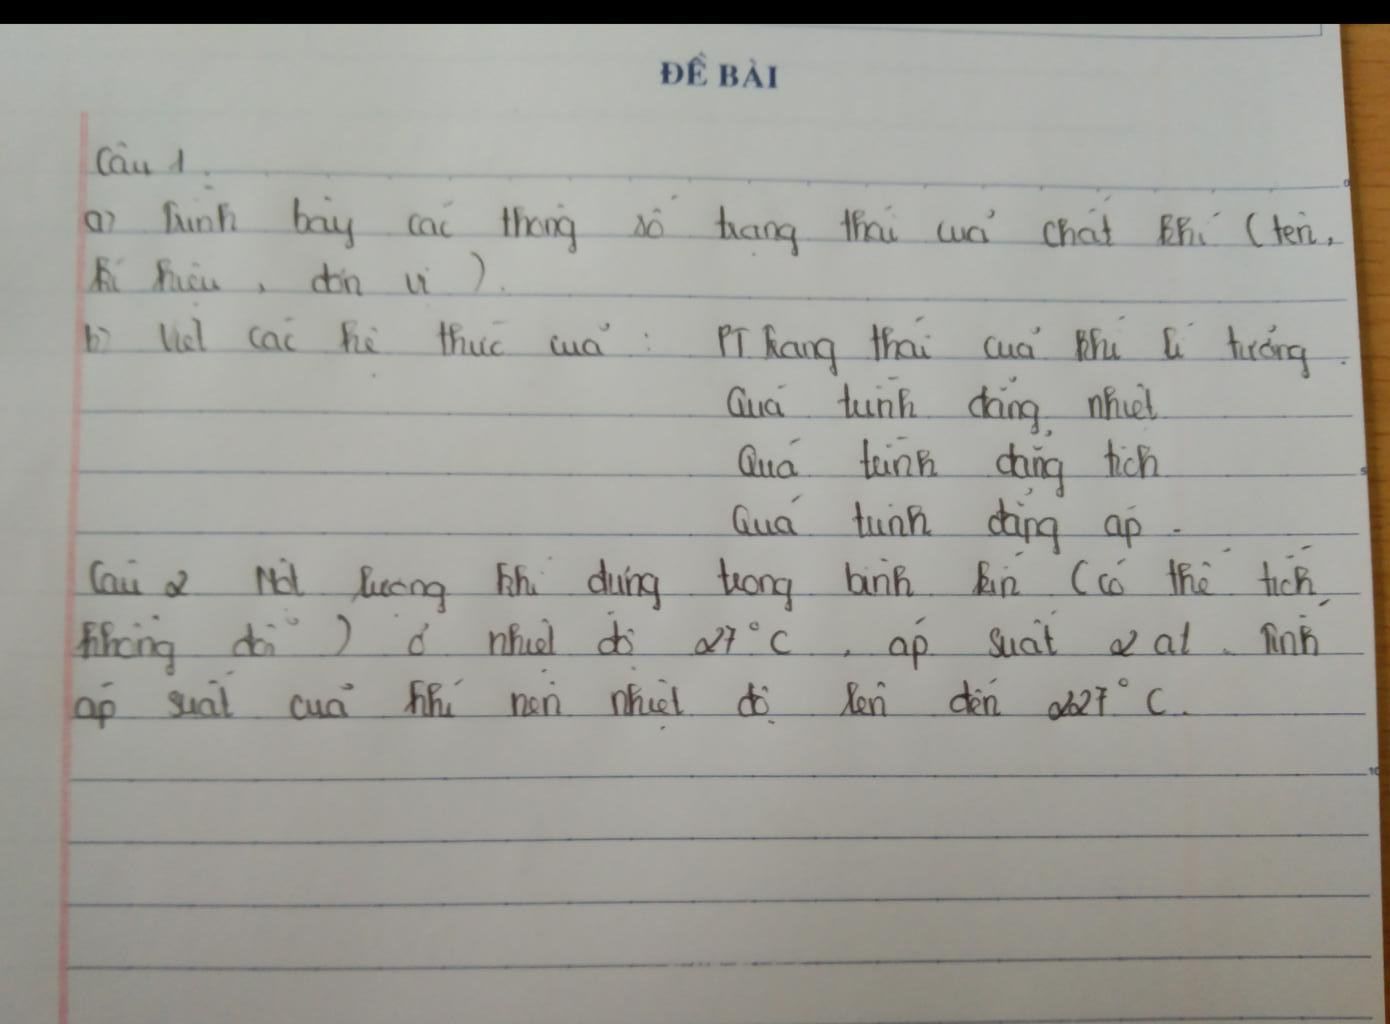 ĐỀ BÀI
Câu 1.
a) Trình bày các thông số trạng thái của chất khí (tên,
kí hiệu, đơn vị).
b) Viết các hệ thức của : PT trạng thái của khí lí tưởng.
Quá trình đẳng nhiệt
Quá trình đẳng tích
Quá trình đẳng áp.
Câu 2 Một lượng khí đựng trong bình kín (có thể tích
không đổi) ở nhiệt độ 27°C, áp suất 2 at. Tính
áp suất của khí nén nhiệt độ lên đến 227°C.